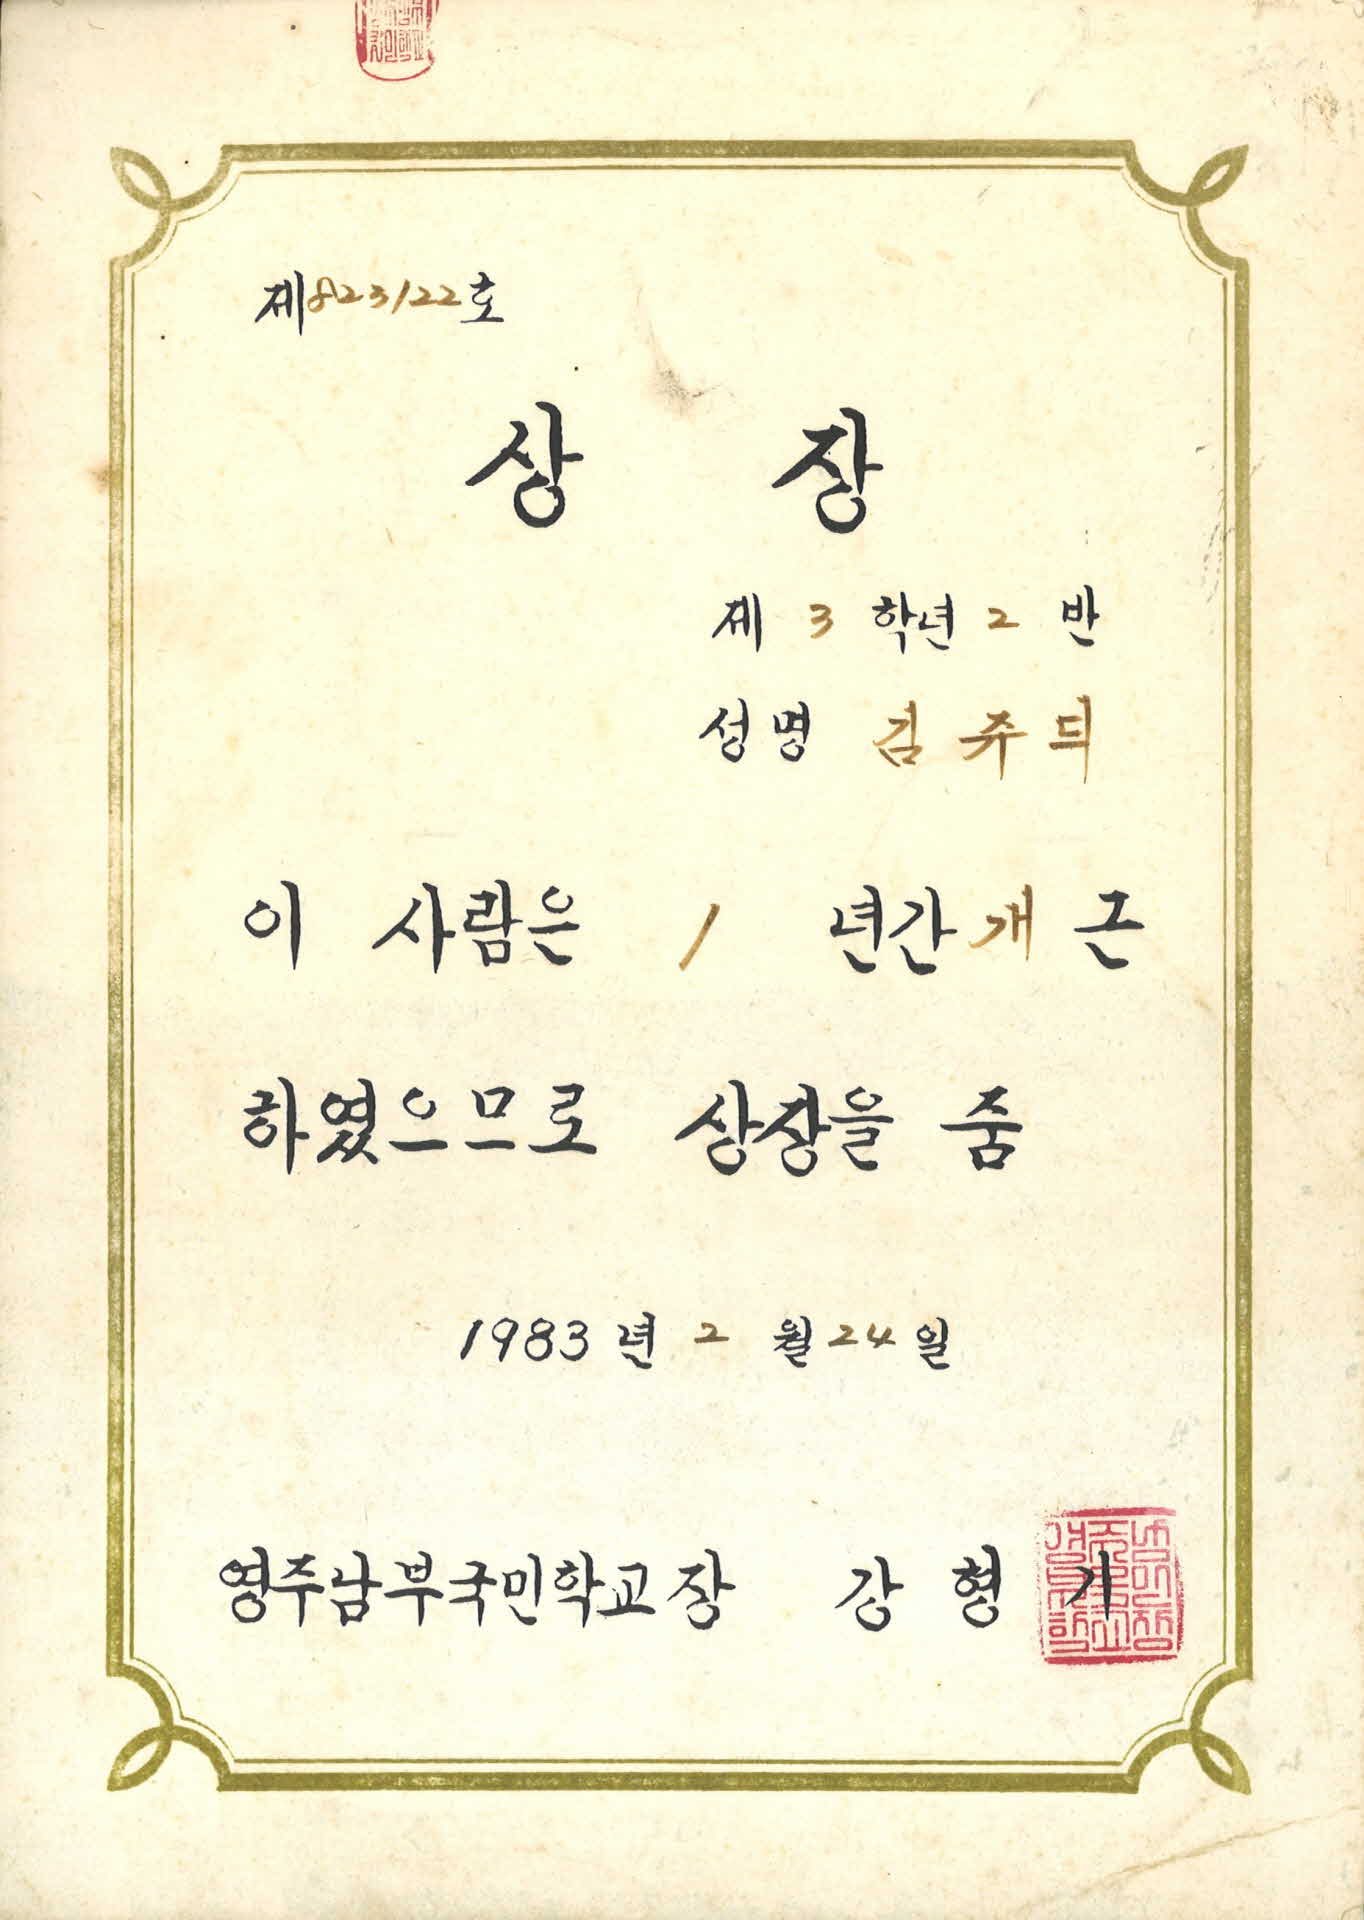 제823122호
상 장
제 3 학년 2 반
성명 김 쥬 듸
이 사람은 1 년간 개 근
하였으므로 상장을 줌
1983 년 2 월 24 일
영주남부국민학교장 강 형 기